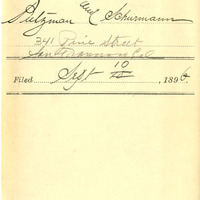 Sutzman and Schurmann
341 Pine Street
San Francisco Cal
Filed Sept 10 , 1896.